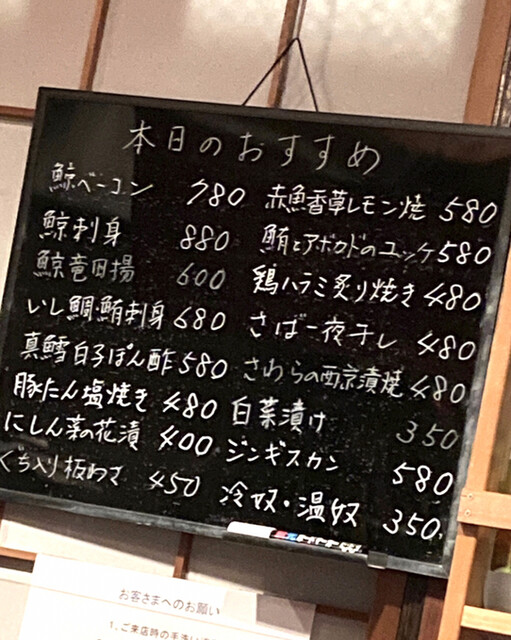 本日のおすすめ
鯨ベーコン 780
鯨刺身 880
鯨竜田揚 600
いし鯛鮪刺身 680
真鱈白子ぽん酢 580
豚たん塩焼き 480
にしん菜の花漬 400
ぐち入り板わさ 450
赤魚香草レモン焼 580
鮪とアボカドのユッケ 580
鶏ハラミ炙り焼き 480
さば一夜干し 480
さわらの西京漬焼 480
白菜漬け 350
ジンギスカン 580
冷奴・温奴 350
お客さまへのお願い
1、ご来店時の手洗い